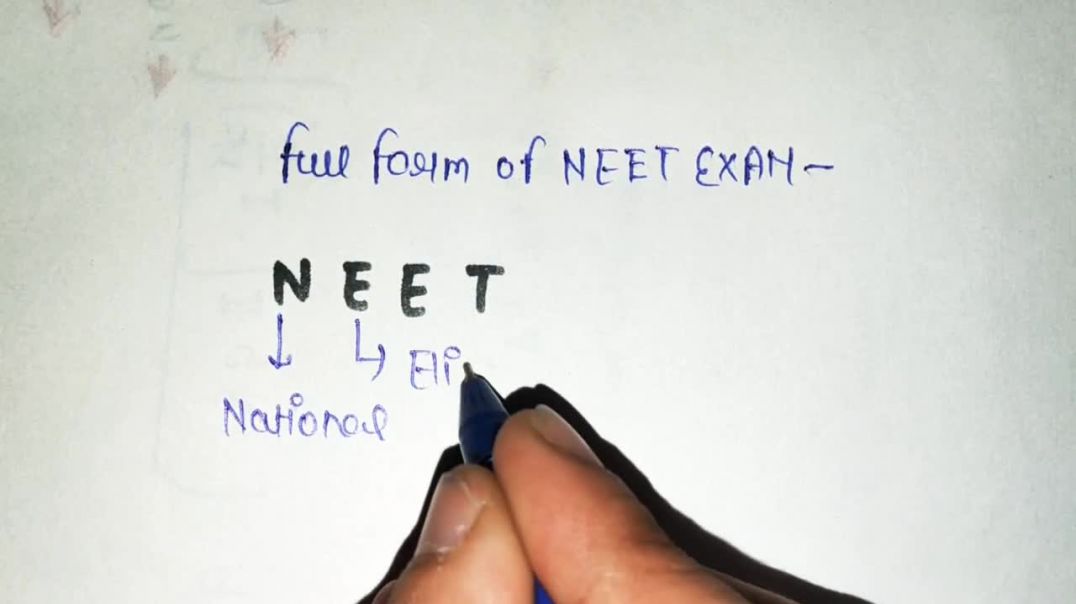 full form of NEET EXAM-
NEET
Eli
National